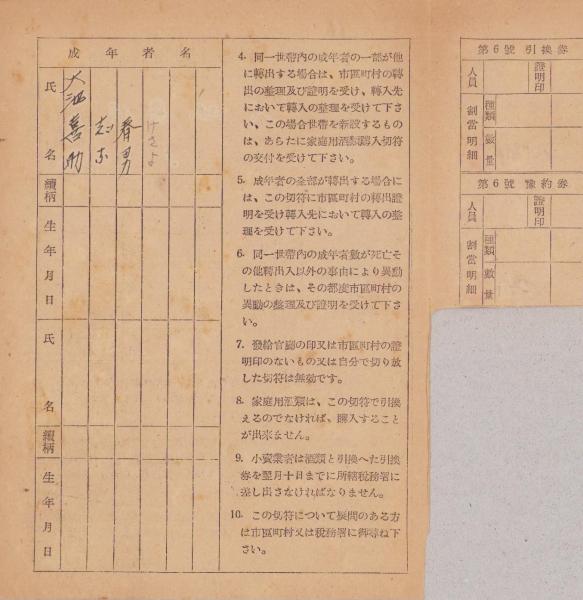 成年者名
氏名
大池喜助
志
春男
けさよ
續柄
生年月日
氏名
續柄
生年月日
4. 同一世帶內の成年者の一部が他
に轉出する場合は、市區町村の轉
出の整理及び證明を受け、轉入先
において轉入の整理を受けて下さ
い、この場合世帶を新設するもの
は、あらたに家庭用酒類購入切符
の交付を受けて下さい。
5. 成年者の全部が轉出する場合に
は、この切符に市區町村の轉出證
明を受け轉入先において轉入の整
理を受けて下さい。
6. 同一世帶內の成年者數が死亡そ
の他轉出入以外の事由により異動
したときは、その都度市區町村の
異動の整理及び證明を受けて下さ
い。
7. 發給官廳の印又は市區町村の證
明印のないもの又は自分で切り放
した切符は無効です。
8. 家庭用酒類は、この切符で引換
えるのでなければ、購入すること
が出來ません。
9. 小賣業者は酒類と引換へた引換
券を翌月十日までに所轄稅務署に
差し出さなければなりません。
10. この切符について疑問のある方
は市區町村又は稅務署に御尋ね下
さい。
第6號引換券
人員
證明印
割當明細
種類
數量
第6號豫約券
人員
證明印
割當明細
種類
數量